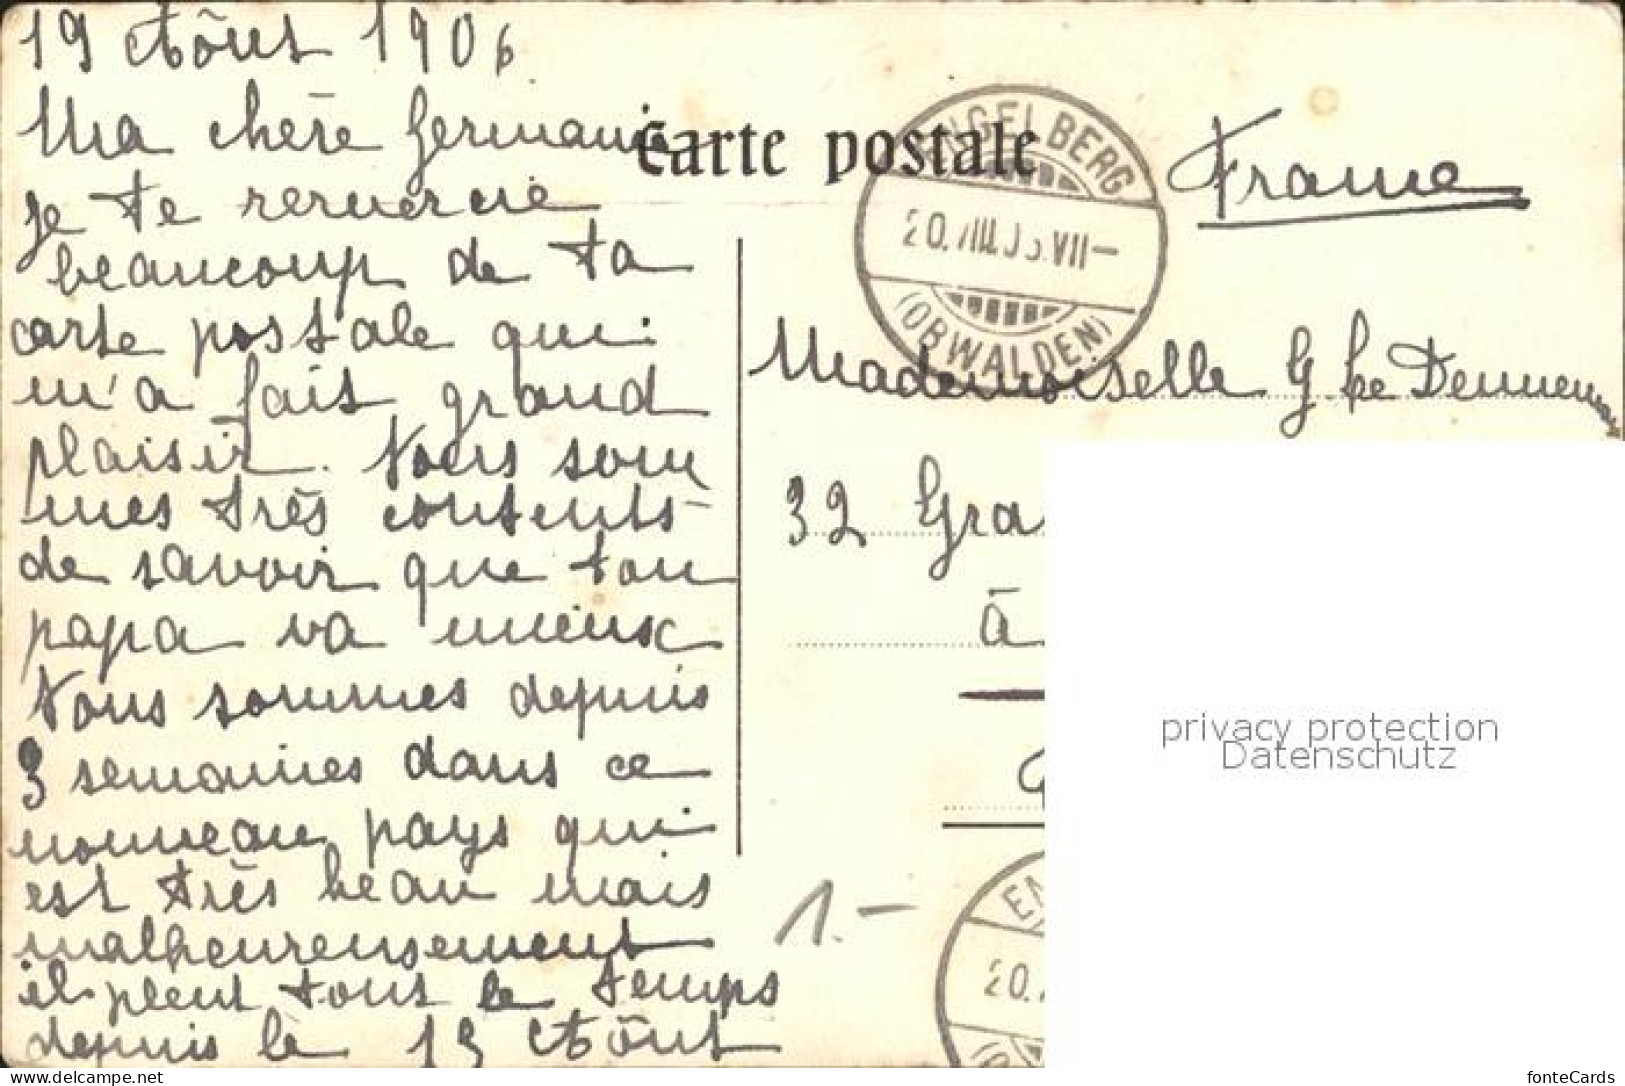 19 Août 1906
Ma chère Germaine
je te remercie
beaucoup de ta
carte postale qui
m'a fait grand
plaisir. Nous som
mes très contents
de savoir que ton
papa va mieux
Nous sommes depuis
3 semaines dans ce
nouveau pays qui
est très beau mais
malheureusement
il pleut tout le temps
depuis le 13 Août
Carte postale
ENGELBERG
20.VIII.06.VII-
(OBWALDEN)
France
Mademoiselle G
32 Gra
à
privacy protection
Datenschutz
1.-
EN
20.
www.delcampe.net
fonteCards